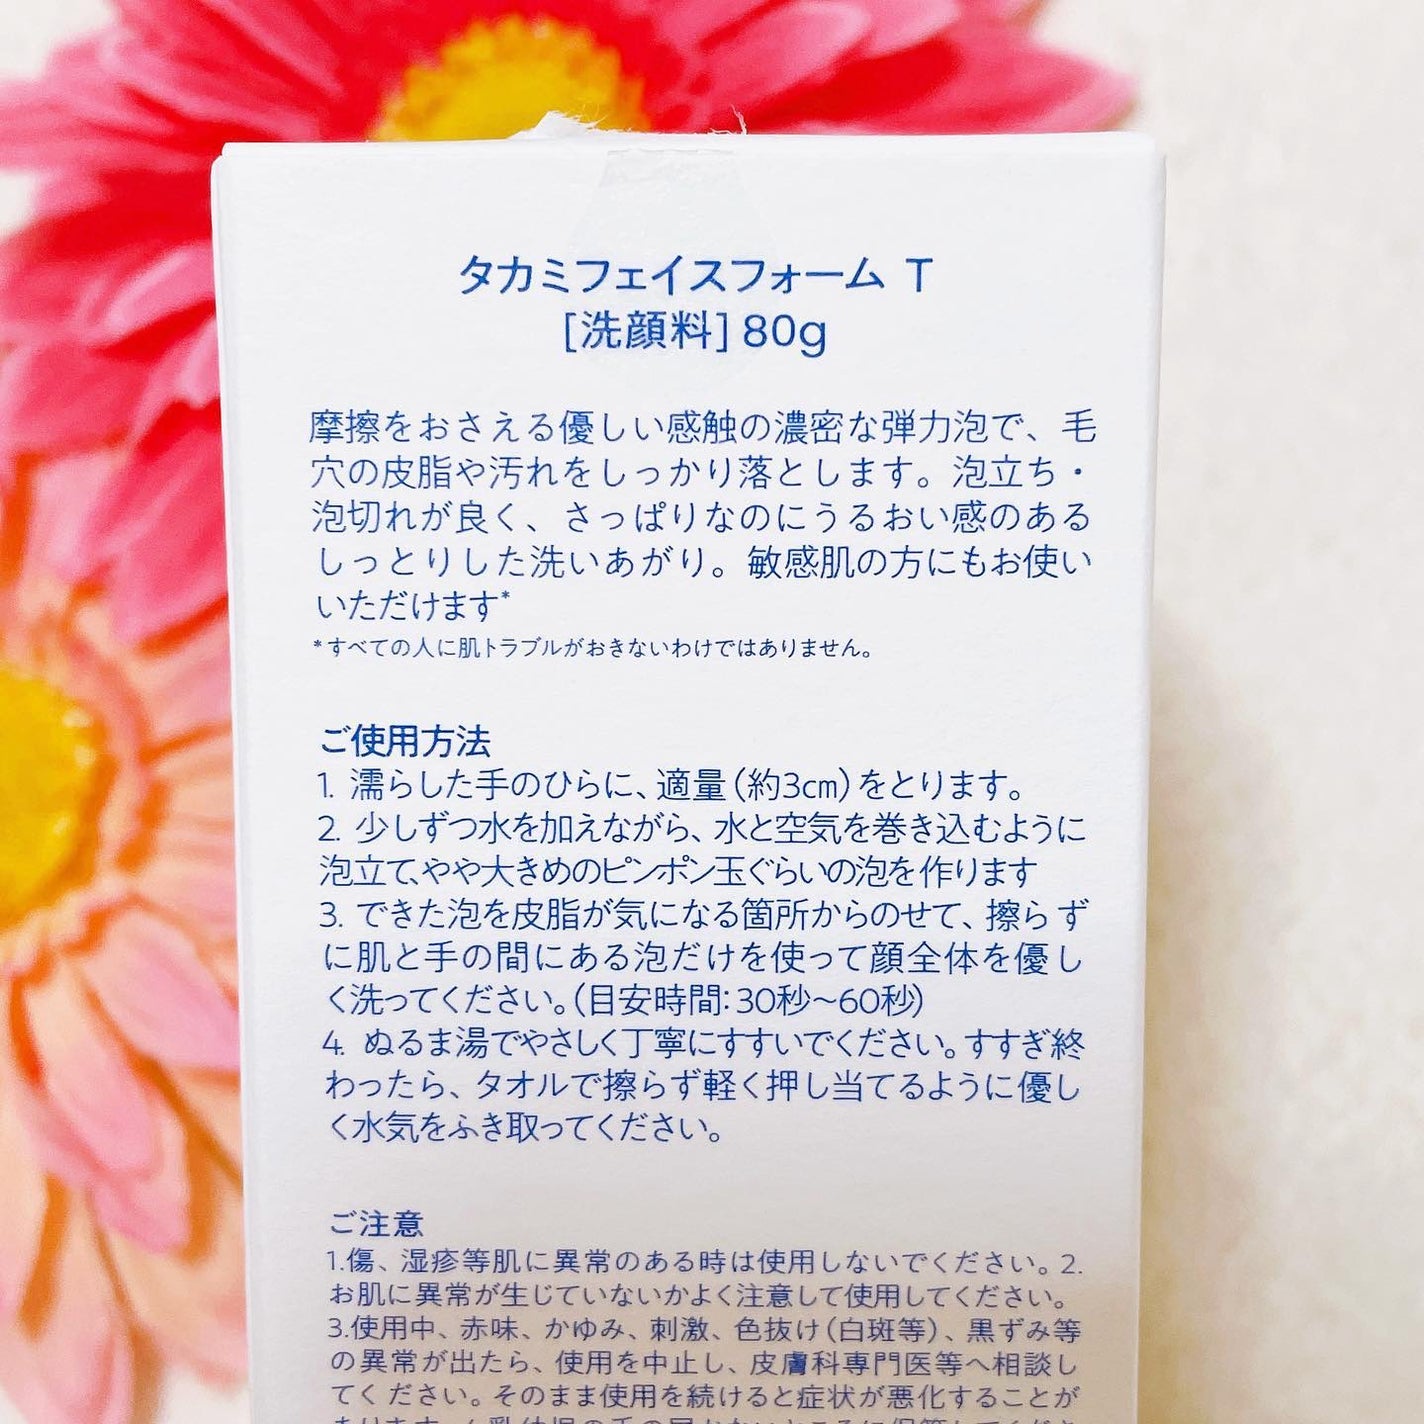 タカミフェイスフォーム T
[洗顔料] 80g
摩擦をおさえる優しい感触の濃密な弾力泡で、毛
穴の皮脂や汚れをしっかり落とします。泡立ち・
泡切れが良く、さっぱりなのにうるおい感のある
しっとりした洗いあがり。敏感肌の方にもお使い
いただけます*
*すべての人に肌トラブルがおきないわけではありません。
ご使用方法
1. 濡らした手のひらに、適量(約3cm)をとります。
2. 少しずつ水を加えながら、水と空気を巻き込むように
泡立て、やや大きめのピンポン玉ぐらいの泡を作ります
3. できた泡を皮脂が気になる箇所からのせて、擦らず
に肌と手の間にある泡だけを使って顔全体を優し
く洗ってください。(目安時間:30秒〜60秒)
4. ぬるま湯でやさしく丁寧にすすいでください。すすぎ終
わったら、タオルで擦らず軽く押し当てるように優し
く水気をふき取ってください。
ご注意
1.傷、湿疹等肌に異常のある時は使用しないでください。2.
お肌に異常が生じていないかよく注意して使用してください。
3.使用中、赤味、かゆみ、刺激、色抜け(白斑等)、黒ずみ等
の異常が出たら、使用を中止し、皮膚科専門医等へ相談し
てください。そのまま使用を続けると症状が悪化することが